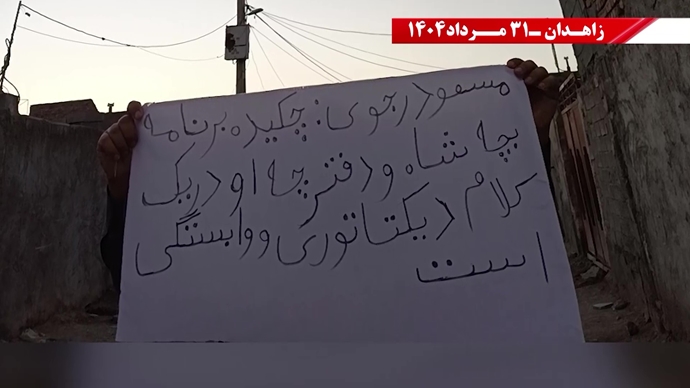 زاهـدان ـ۳۱ مـرداد۱۴۰۴
مسعود رجوی: چکیده برنامه
بچه شاه و دفترچه او در یک
کلام دیکتاتوری و وابستگی
است